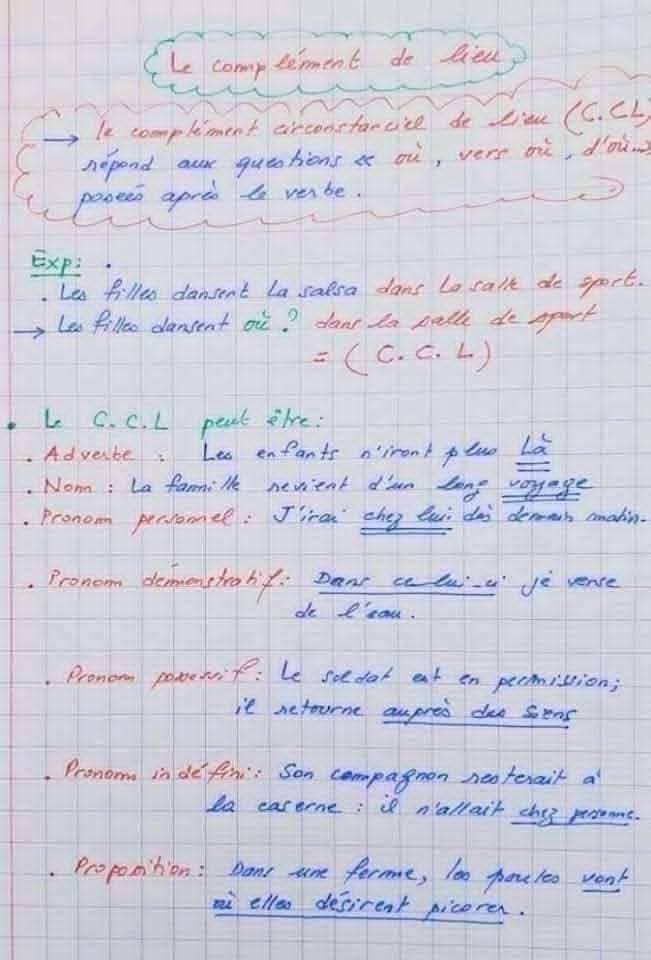 Le complément de lieu
→ le complément circonstanciel de lieu (C.CL)
répond aux questions « où, vers où, d'où...»
posées après le verbe.
Exp:
. Les filles dansent La salsa dans La salle de sport.
→ Les filles dansent où ? dans la salle de sport
= ( C. C. L )
. Le C.C.L peut être :
. Adverbe : Les enfants n'iront plus Là
. Nom : La famille revient d'un long voyage
. Pronom personnel : J'irai chez lui dès demain matin.
. Pronom démonstratif : Dans celui-ci je verse
de l'eau.
. Pronom possessif : Le soldat est en permission;
il retourne auprès des Siens
. Pronom indéfini : Son compagnon resterait à
la caserne : il n'allait chez personne.
. Proposition : Dans une ferme, les poules vont
où elles désirent picorer.